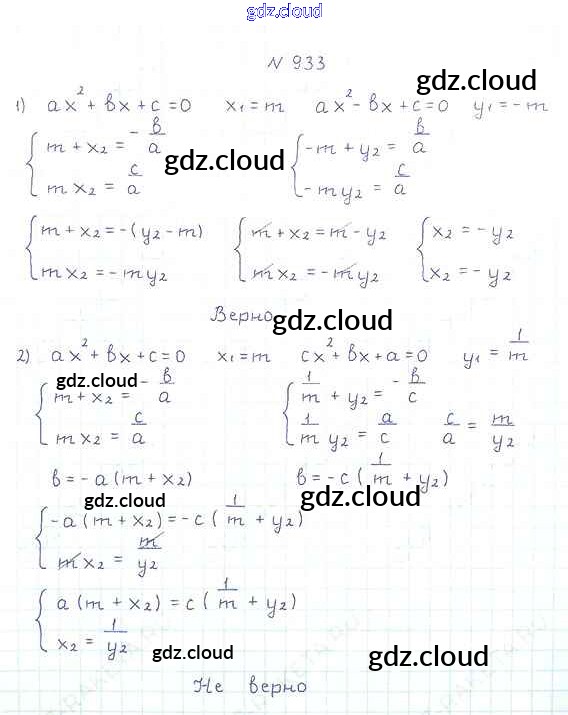 gdz.cloud
N 933
gdz.cloud
1) ax² + bx + c = 0 x₁ = m ax² - bx + c = 0 y₁ = -m
{ m + x₂ = -b/a { -m + y₂ = b/a
gdz.cloud gdz.cloud
m x₂ = c/a -m y₂ = c/a
{ m + x₂ = -(y₂ - m) { m + x₂ = m - y₂ { x₂ = -y₂
m x₂ = -m y₂ m x₂ = -m y₂ x₂ = -y₂
Верно
gdz.cloud
2) ax² + bx + c = 0 x₁ = m cx² + bx + a = 0 y₁ = 1/m
gdz.cloud
{ m + x₂ = -b/a { 1/m + y₂ = -b/c
gdz.cloud
m x₂ = c/a 1/m y₂ = a/c c/a = m/y₂
b = -a (m + x₂) b = -c (1/m + y₂)
gdz.cloud gdz.cloud
{ -a (m + x₂) = -c (1/m + y₂)
m x₂ = m/y₂
{ a (m + x₂) = c (1/m + y₂)
x₂ = 1/y₂
gdz.cloud gdz.cloud
Не верно